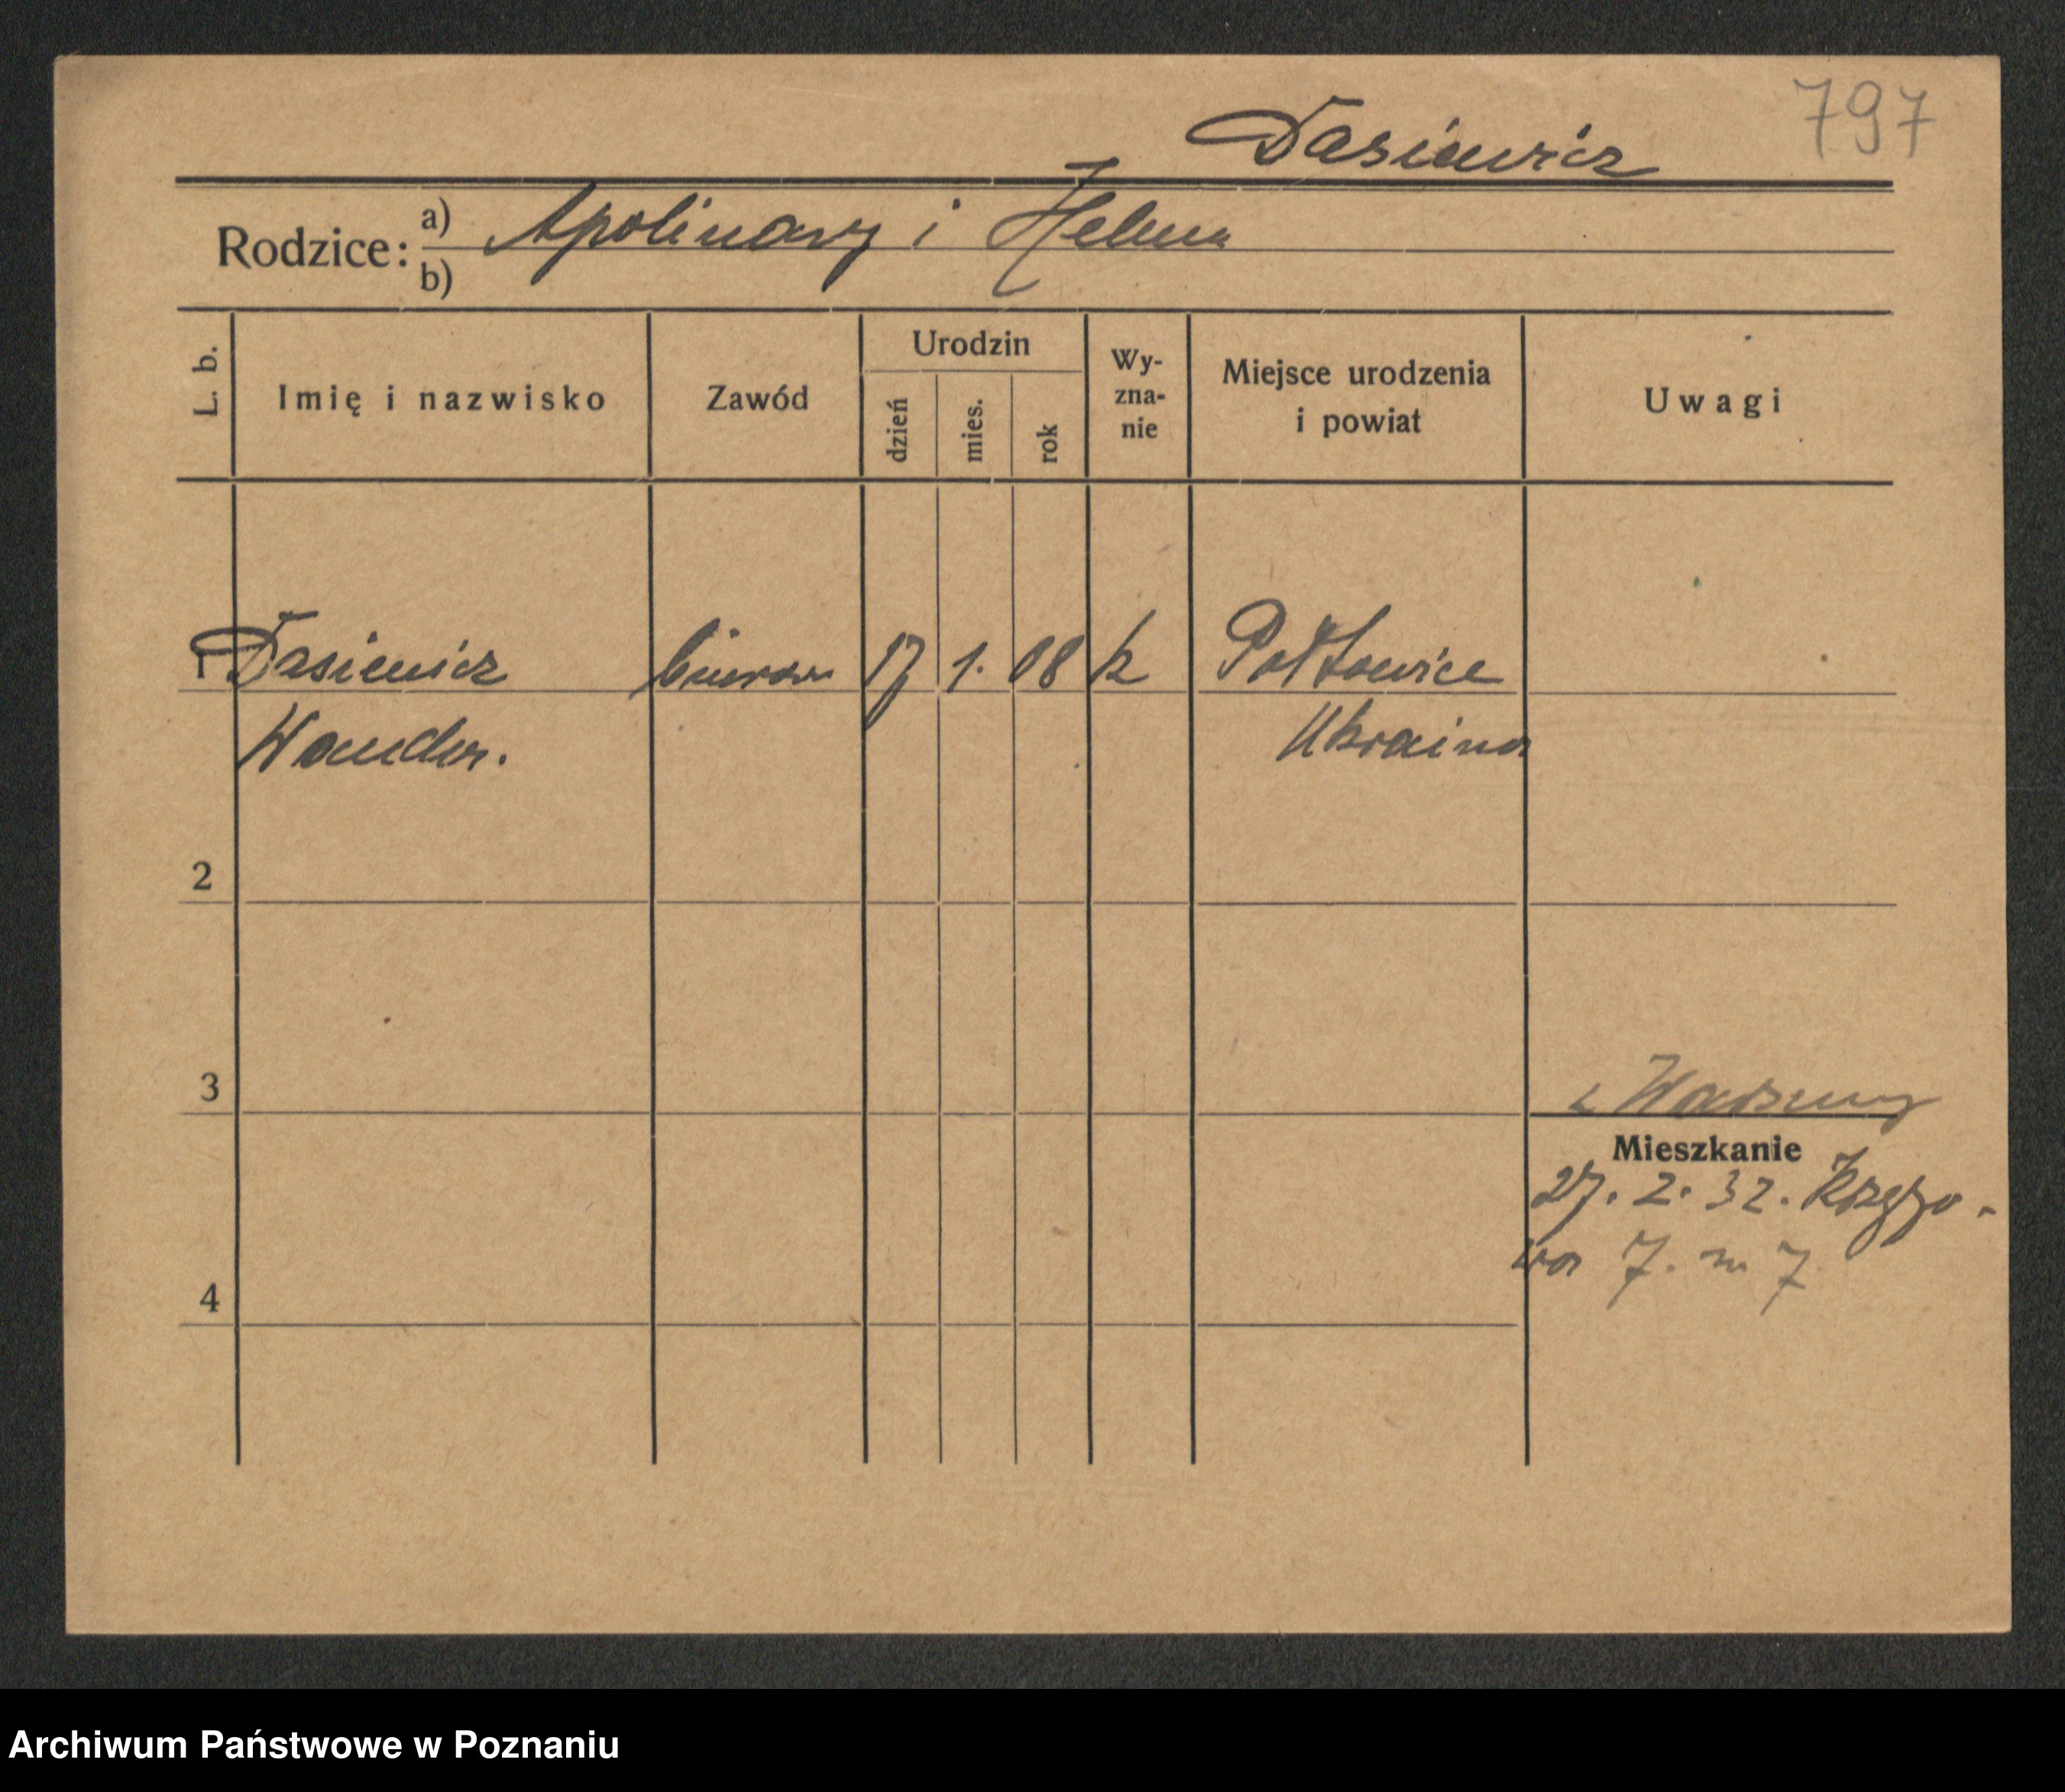 797
Dasiewicz
Rodzice: a) Apolinary i Helena
b)
L. b. Imię i nazwisko Zawód Urodzin dzień mies. rok Wy-zna-nie Miejsce urodzenia i powiat Uwagi
1 Dasiewicz biurow 17 1. 08 k Połtowice
Wanda. Ukraina
2
3 z Warszawy
Mieszkanie
27. 2. 32.
wa 7. m 7
4
Archiwum Państwowe w Poznaniu